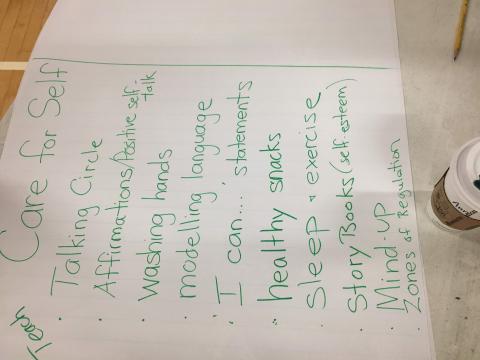 Teach
Care for Self
· Talking Circle
· Affirmations/Positive self-
talk
· Washing hands
· modelling language
· "I can..." statements
· healthy snacks
· Sleep + exercise
· Story Books (self-esteem)
· Mind-up
· Zones of Regulation